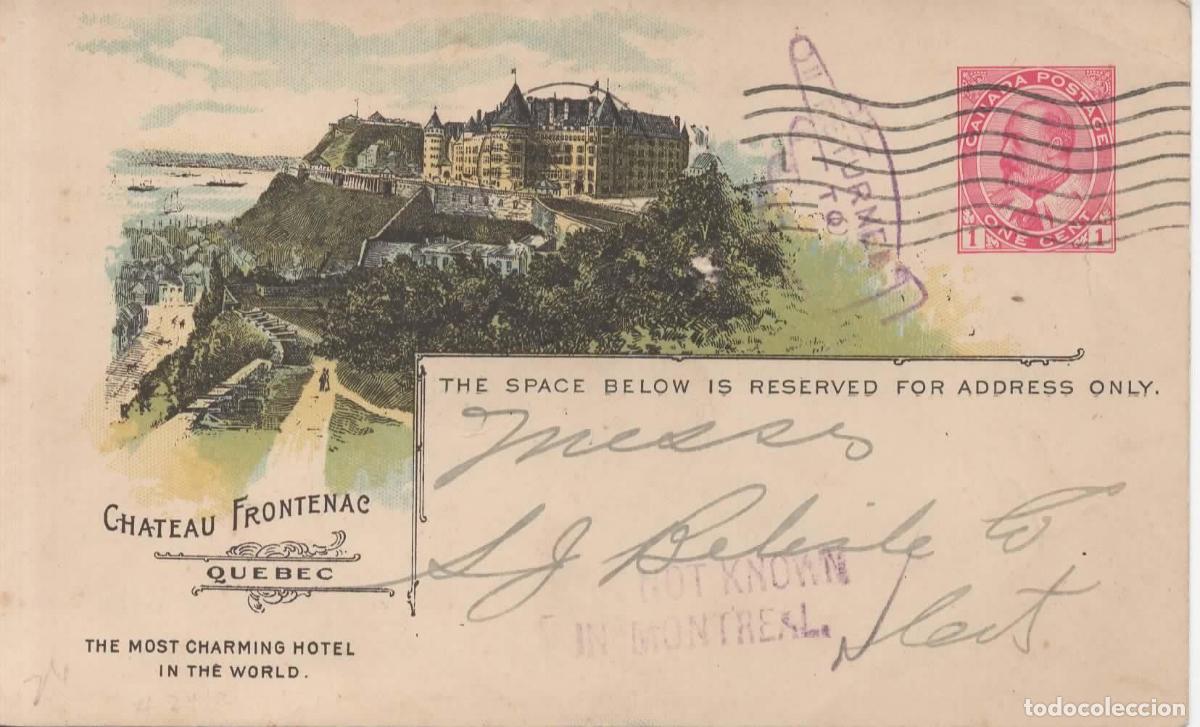 CANADA POSTAGE
1 ONE CENT 1
THE SPACE BELOW IS RESERVED FOR ADDRESS ONLY.
Messrs
S J Belisle Co
NOT KNOWN
IN MONTREAL.
CHATEAU FRONTENAC
QUEBEC
THE MOST CHARMING HOTEL
IN THE WORLD.
todocoleccion